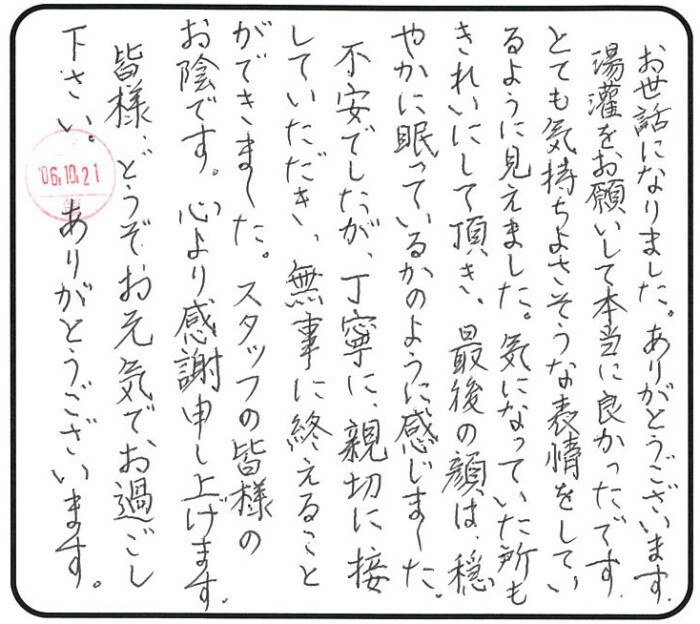 お世話になりました。ありがとうございます。
湯灌をお願いして本当に良かったです。
とても気持ちよさそうな表情をしてい
るように見えました。気になっていた所も
きれいにして頂き、最後の顔は、穏
やかに眠っているかのように感じました。
不安でしたが、丁寧に、親切に接
していただき、無事に終えること
ができました。スタッフの皆様の
お陰です。心より感謝申し上げます。
皆様、どうぞお元気でお過ごし
下さい。ありがとうございます。
'06.10.21